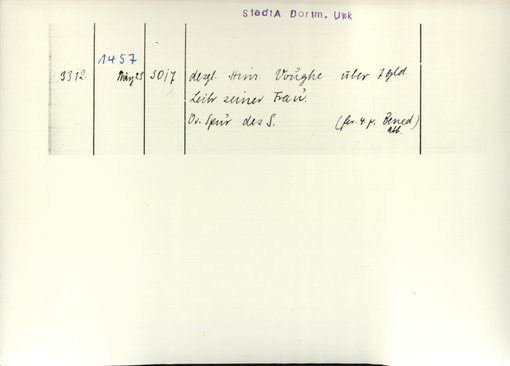 StadtA Dortm. Urk
1457
3312. März 21 3017 desgl. Hinr. Voŭghe über 7 gld.
Leibr seiner Frau.
Or. Spur des S. (fer. 4 p. Bened)
abb.